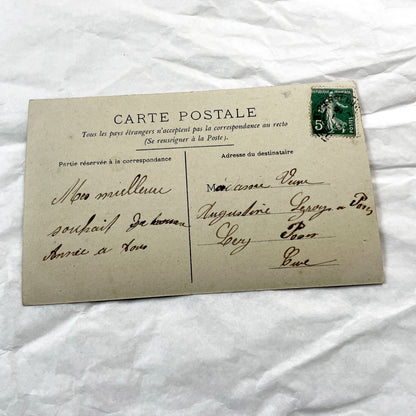 CARTE POSTALE
Tous les pays étrangers n'acceptent pas la correspondance au recto
(Se renseigner à la Poste).
Partie réservée à la correspondance
Mes meilleur
souhait
Année a tous
Adresse du destinataire
Veuve
Augustine Leroy a
5
POSTES